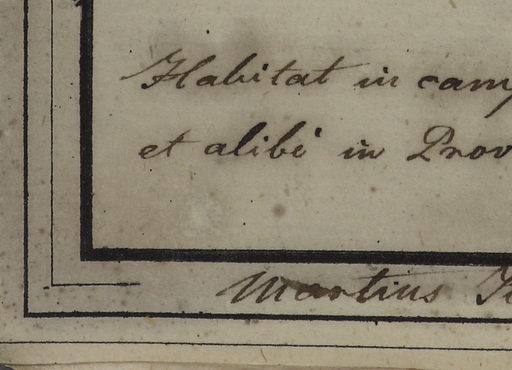 Habitat in camp
et alibi in Prov
Martius